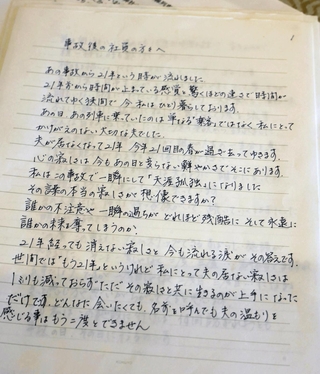 1
事故後の社員の方々へ
あの事故から21年という時が流れました
21年前から時間が止まっている感覚と驚くほどの速さで時間が
流れてゆく狭間で今私はひとり暮らしております
あの日、あの列車に乗っていたのは単なる"乗客"ではなく私にとって
かけがえのない大切な夫でした。
夫が居なくなって21年 今年21回目の春が過ぎ去ってゆきます
心の寂しさは今もあの日と変らない鮮やかさでそこにあります。
私はこの事故で一瞬にして「天涯孤独」になりました
その言葉の本当の寂しさが想像できますか?
誰かの不注意や一瞬の過ちがどれほど残酷に そして永遠に
誰かの未来を奪ってしまうのか、
21年経っても消えない寂しさと今も流れる涙がその答えです。
世間では「もう21年」というけれど 私にとって夫の居ない寂しさは
1ミリも減っておらず、ただその寂しさと共に生きるのが上手になった
だけです。どんなに会いたくても、名前を呼んでも夫の温もりを
感じる事はもう二度とできません